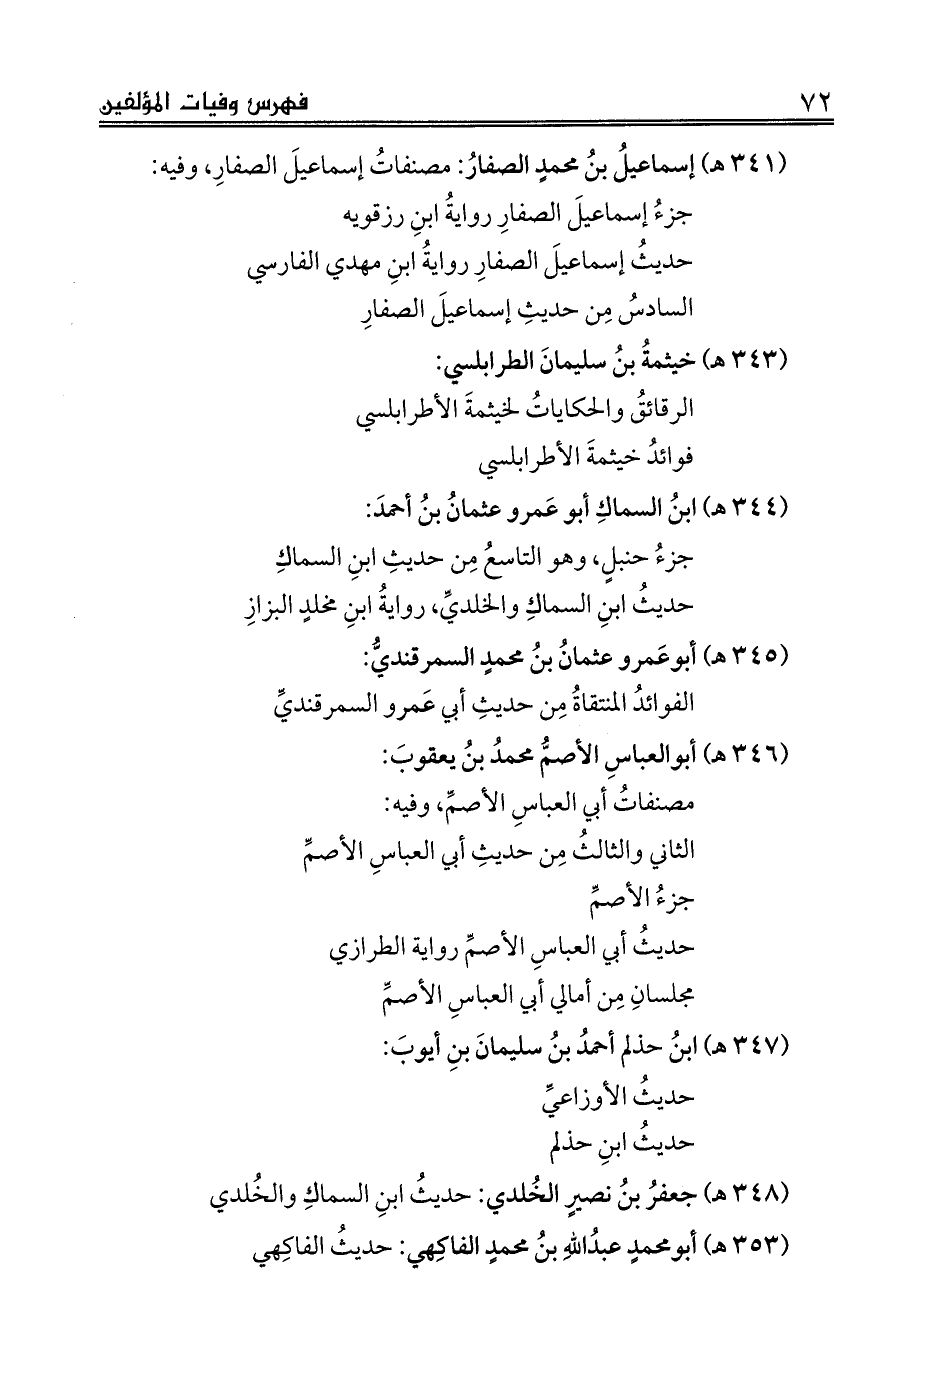 ٧٢ فهرس وفيات المؤلفين
(٣٤١ هـ) إسماعيلُ بنُ محمدٍ الصفارُ: مصنفاتُ إسماعيلَ الصفارِ، وفيه:
جزءُ إسماعيلَ الصفارِ روايةُ ابنِ رزقويه
حديثُ إسماعيلَ الصفارِ روايةُ ابنِ مهدي الفارسي
السادسُ مِن حديثِ إسماعيلَ الصفارِ
(٣٤٣ هـ) خيثمةُ بنُ سليمانَ الطرابلسي:
الرقائقُ والحكاياتُ لخيثمةَ الأطرابلسي
فوائدُ خيثمةَ الأطرابلسي
(٣٤٤ هـ) ابنُ السماكِ أبو عَمرو عثمانُ بنُ أحمدَ:
جزءُ حنبلٍ، وهو التاسعُ مِن حديثِ ابنِ السماكِ
حديثُ ابنِ السماكِ والخلديِّ، روايةُ ابنِ مخلدٍ البزازِ
(٣٤٥ هـ) أبو عَمرو عثمانُ بنُ محمدٍ السمرقنديُّ:
الفوائدُ المنتقاةُ مِن حديثِ أبي عَمرو السمرقنديِّ
(٣٤٦ هـ) أبو العباسِ الأصمُّ محمدُ بنُ يعقوبَ:
مصنفاتُ أبي العباسِ الأصمِّ، وفيه:
الثاني والثالثُ مِن حديثِ أبي العباسِ الأصمِّ
جزءُ الأصمِّ
حديثُ أبي العباسِ الأصمِّ رواية الطرازي
مجلسانِ مِن أمالي أبي العباسِ الأصمِّ
(٣٤٧ هـ) ابنُ حذلم أحمدُ بنُ سليمانَ بنِ أيوبَ:
حديثُ الأوزاعيِّ
حديثُ ابنِ حذلم
(٣٤٨ هـ) جعفرُ بنُ نصيرٍ الخُلدي: حديثُ ابنِ السماكِ والخُلدي
(٣٥٣ هـ) أبو محمدٍ عبدُاللهِ بنُ محمدٍ الفاكِهي: حديثُ الفاكِهي